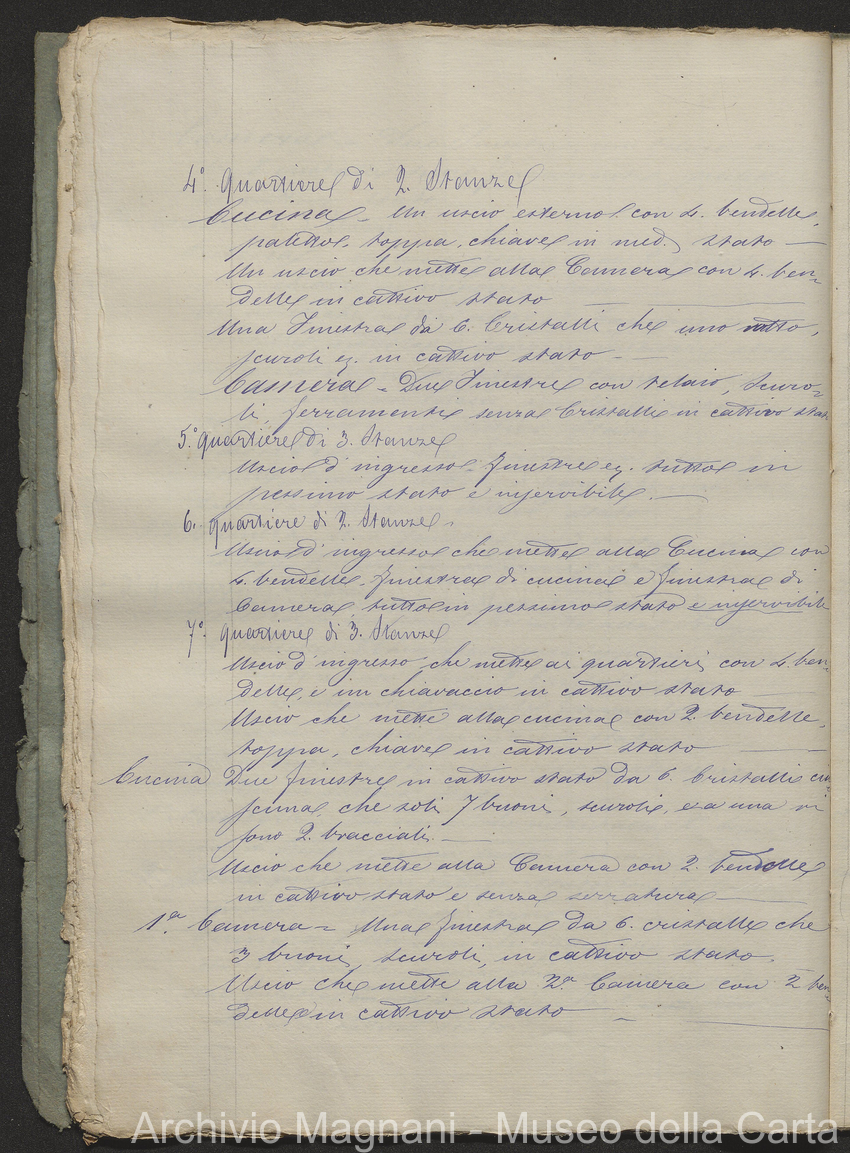 4º. Quartiere di 2. Stanze
Cucina - Un uscio esterno con 4. bendelle,
paletto, toppa, chiave in med. stato —
Un uscio che mette alla Camera con 4. ben=
delle in cattivo stato
Una Finestra da 6. Cristalli che uno rotto,
scuroli in cattivo stato —
Camera = Due Finestre con telaio, Scuro=
li, ferramenti senza Cristalli in cattivo stato
5.º Quartiere di 3. Stanze
Uscio d'ingresso - finestre tutto in
pessimo stato e inservibile. —
6. Quartiere di 2. Stanze.
Uscio d'ingresso che mette alla Cucina con
4. bendelle, finestra di cucina e finestra di
Camera, tutto in pessimo stato e inservibile
7º. Quartiere di 3. Stanze
Uscio d'ingresso che mette ai quartieri con 4. ben=
delle, e un chiavaccio in cattivo stato
Uscio che mette alla cucina con 2. bendelle,
toppa, chiave in cattivo stato
Cucina Due finestre in cattivo stato da 6. Cristalli cia=
scuna, che soli 7 buoni, scuroli, e a una vi
sono 2. bracciali. —
Uscio che mette alla Camera con 2. bendelle
in cattivo stato e senza serratura —
1.ª Camera = Una finestra da 6. cristalli che
3 buoni, scuroli, in cattivo stato.
Uscio che mette alla 2.ª Camera con 2 ben=
delle in cattivo stato
Archivio Magnani - Museo della Carta